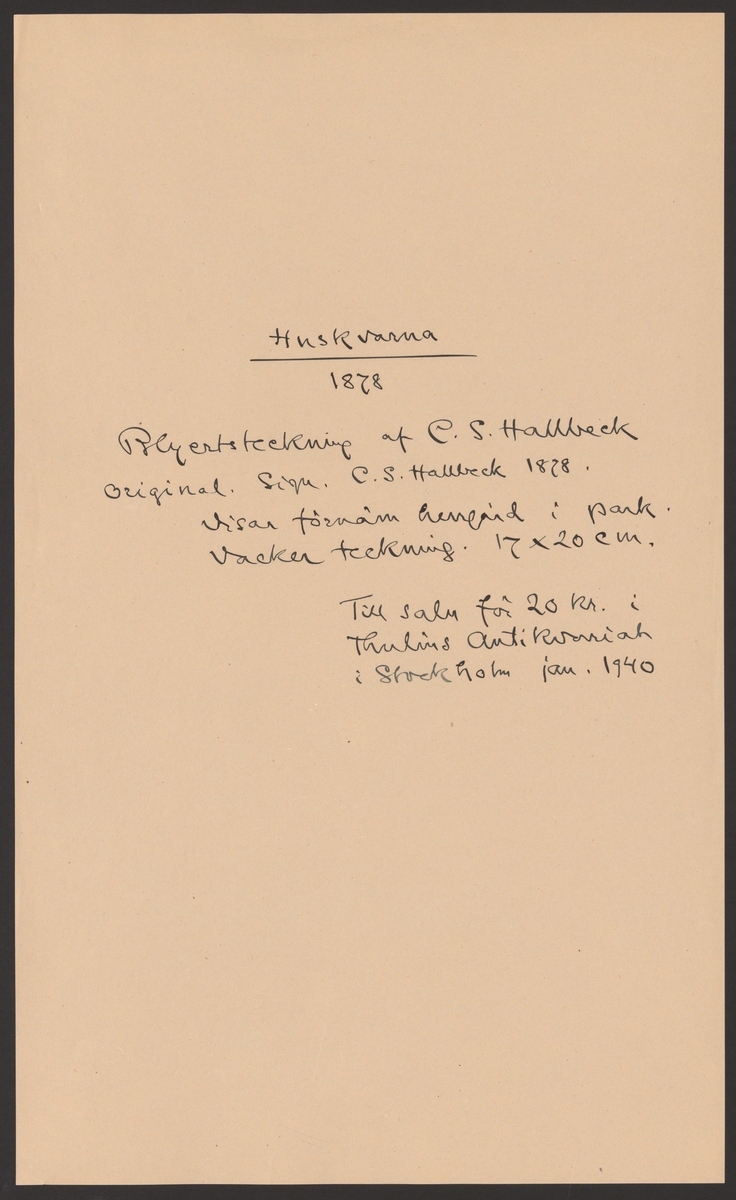 Huskvarna
1878
Blyertsteckning af C. S. Hallbeck
Original. Sign. C. S. Hallbeck 1878.
Visar förnäm herrgård i park.
Vacker teckning. 17 x 20 cm.
Till salu för 20 kr. i
Thulins Antikvariat
i Stockholm jan. 1940